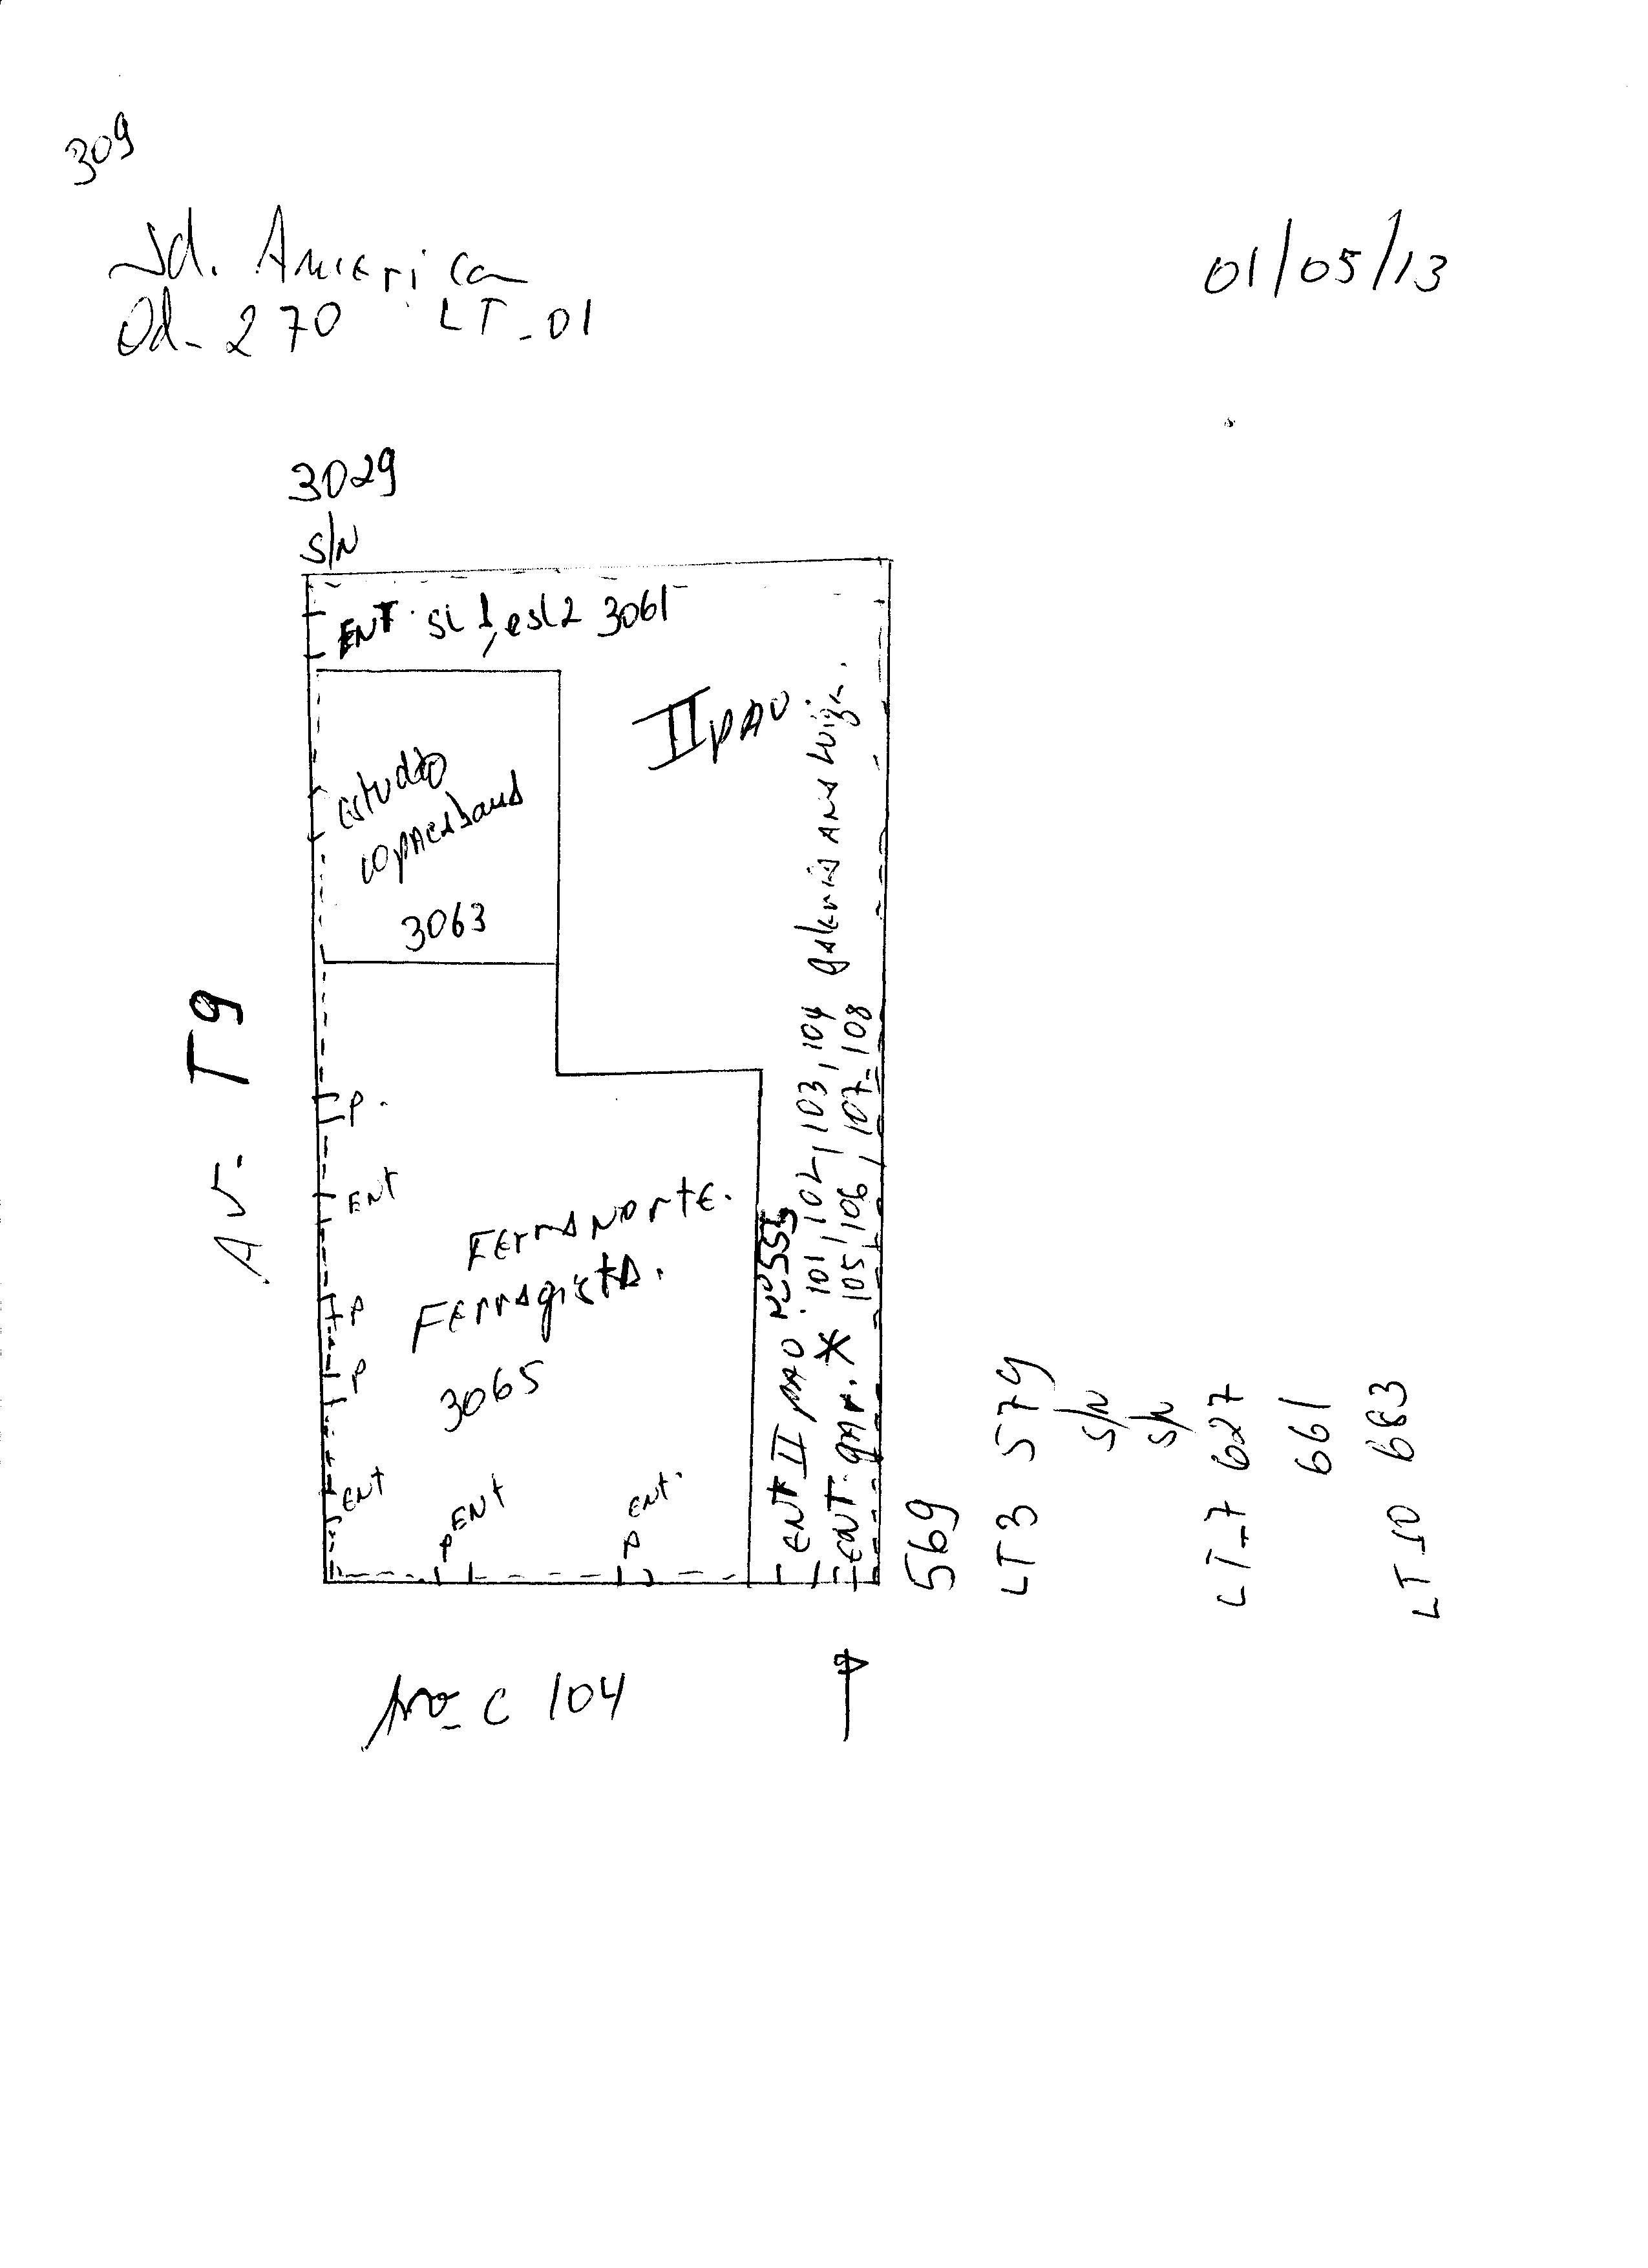 309
Jd. America
Qd- 270 LT-01
01/05/13
3029
S/N
ENT. sl 1, e sl 2 3061
II pav.
estudio
copacabana
3063
Av. T9
P.
ENT
P
P
ENT
Ferranorte.
Ferragista.
3065
P ENT
P ENT.
ENT II pav. Nº 555
ENT. gar. * 101, 102, 103, 104 galeria Ana Luiza.
105, 106, 107-108
569
LT 3 579
S/N
S/N
LT-7 627
661
LT-10 683
C 104